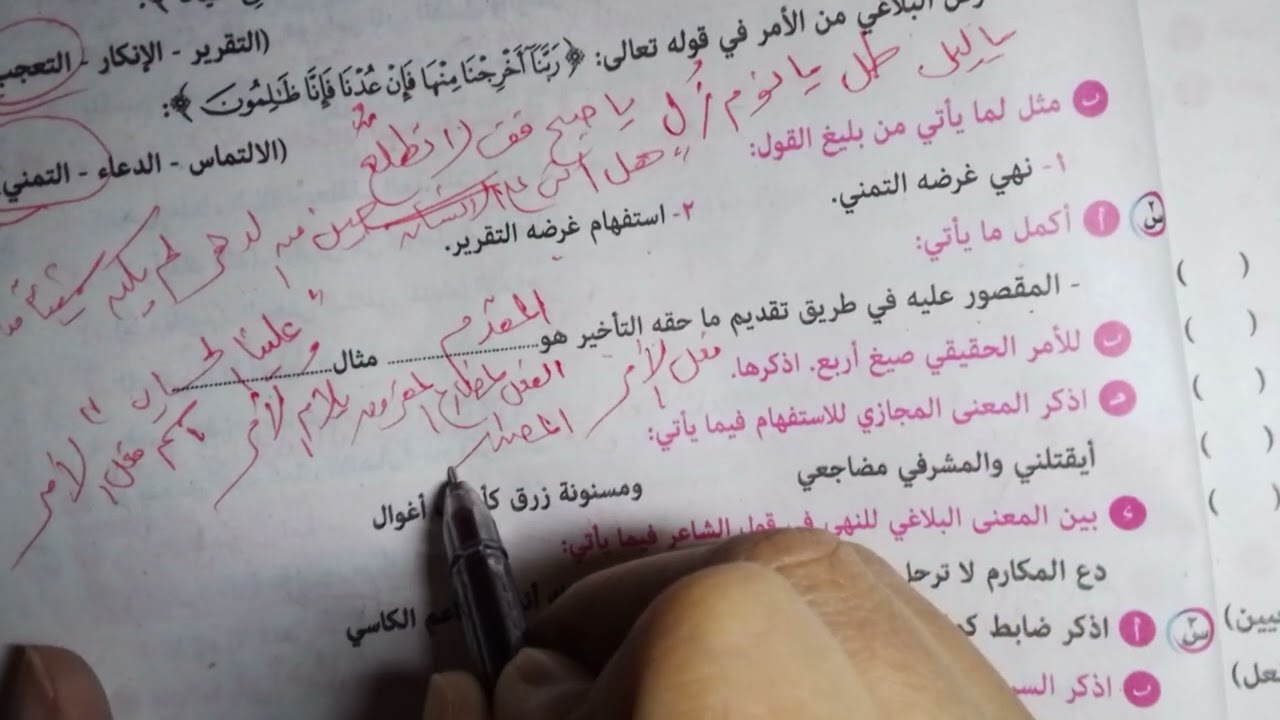 البلاغي من الأمر في قوله تعالى: ﴿ رَبَّنَا أَخْرِجْنَا مِنْهَا فَإِنْ عُدْنَا فَإِنَّا ظَٰلِمُونَ ﴾:
(التقرير - الإنكار - التعجب
(الالتماس - الدعاء - التمني
يا ليل طل يا نوم زُل يا صبح قف لا تطلع
ب مثل لما يأتي من بليغ القول:
١- نهي غرضه التمني.
٢- استفهام غرضه التقرير.
" هل أتى على الإنسان حين من الدهر لم يكن شيئا
س٢ أ أكمل ما يأتي:
- المقصور عليه في طريق تقديم ما حقه التأخير هو المقدم مثال
ب للأمر الحقيقي صيغ أربع. اذكرها.
فعل الأمر الفعل المضارع المقرون بلام الأمر اسم فعل الأمر
المصدر
جـ اذكر المعنى المجازي للاستفهام فيما يأتي:
أيقتلني والمشرفي مضاجعي ومسنونة زرق أغوال
د بين المعنى البلاغي للنهي في قول الشاعر فيما يأتي:
دع المكارم لا ترحل الكاسي
س٣ أ اذكر ضابط
ب اذكر